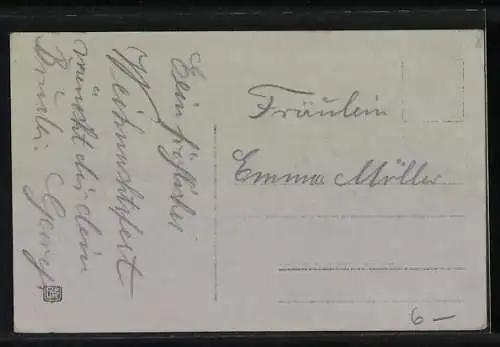 Ein fröhliches
Weihnachtsfest
wünscht dir dein
Bruder Georg
Fräulein
Emma Möller
6 –